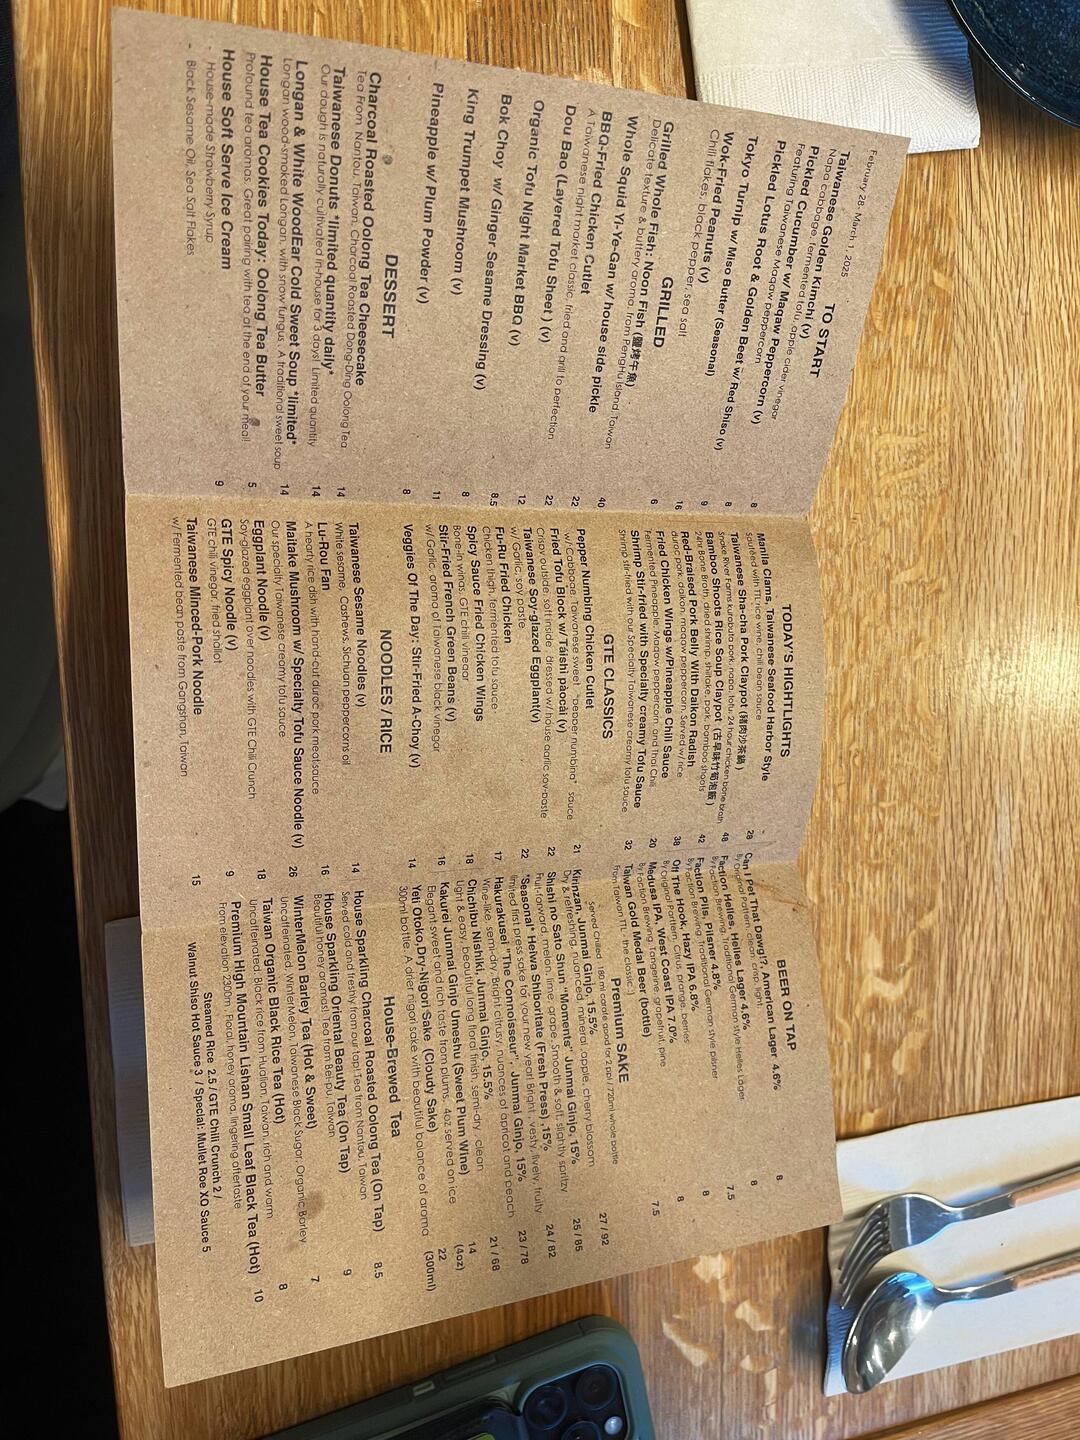 February 28, March 1, 2025
TO START
Taiwanese Golden Kimchi (v) 8
Napa cabbage, fermented tofu, apple cider vinegar
Pickled Cucumber w/ Maqaw Peppercorn (v) 8
Featuring Taiwanese Maqaw peppercorn
Pickled Lotus Root & Golden Beet w/ Red Shiso (v) 9
Tokyo Turnip w/ Miso Butter (Seasonal) 16
Wok-Fried Peanuts (v) 6
Chili flakes, black pepper, sea salt
GRILLED
Grilled Whole Fish: Noon Fish (鹽烤午魚) 40
Delicate texture & buttery aroma, from PengHu Island, Taiwan
Whole Squid Yi-Ye-Gan w/ house side pickle 22
BBQ-Fried Chicken Cutlet 22
A Taiwanese night market classic, fried and grill to perfection
Dou Bao (Layered Tofu Sheet) (v) 12
Organic Tofu Night Market BBQ (v) 8.5
Bok Choy w/ Ginger Sesame Dressing (v) 8
King Trumpet Mushroom (v) 11
Pineapple w/ Plum Powder (v) 8
DESSERT
Charcoal Roasted Oolong Tea Cheesecake 14
Tea From Nantou, Taiwan, Charcoal Roasted Dong-Ding Oolong Tea
Taiwanese Donuts *limited quantity daily* 14
Our dough is naturally cultivated in-house for 3 days! Limited quantity
Longan & White WoodEar Cold Sweet Soup *limited* 14
Longan wood-smoked Longan, with snow fungus. A traditional sweet soup
House Tea Cookies Today: Oolong Tea Butter 5
Profound tea aromas. Great pairing with tea at the end of your meal!
House Soft Serve Ice Cream 9
- House-made Strawberry Syrup
- Black Sesame Oil, Sea Salt Flakes
TODAY'S HIGHTLIGHTS
Manila Clams, Taiwanese Seafood Harbor Style 28
sautéed with TTL rice wine, chili bean sauce
Taiwanese Sha-cha Pork Claypot (豬肉沙茶鍋) 48
Snake River Farms kurobuta pork, napa, tofu, 24 hour chicken bone broth
Bamboo Shoots Rice Soup Claypot (古早味竹筍泡飯) 42
24hr Bone Broth, dried shrimp, shiitake, pork, bamboo shoots
Red-Braised Pork Belly With Daikon Radish 38
duroc pork, daikon, maqaw peppercorn. Served w/ rice
Fried Chicken Wings w/Pineapple Chili Sauce 20
Fermented Pineapple, Maqaw peppercorn, and Thai Chili
Shrimp Stir-fried with Specialty creamy Tofu Sauce 32
Shrimp stir-fried with our Specialty Taiwanese creamy tofu sauce
GTE CLASSICS
Pepper Numbing Chicken Cutlet 21
w/ Cabbage, Taiwanese sweet "pepper numbing" sauce
Fried Tofu Block w/ Táishì pàocài (v) 22
Crispy outside, soft inside - dressed w/ house garlic soy-paste
Taiwanese Soy-glazed Eggplant(v) 22
w/ Garlic, soy paste
Fu-Ru Fried Chicken 17
Chicken thigh, fermented tofu sauce
Spicy Sauce Fried Chicken Wings 18
Bone-in wings, GTE chili vinegar
Stir-Fried French Green Beans (v) 16
w/ Garlic, aroma of Taiwanese black vinegar
Veggies Of The Day: Stir-Fried A-Choy (v) 14
NOODLES / RICE
Taiwanese Sesame Noodles (v) 14
White sesame, Cashews, Sichuan peppercorns oil
Lu-Rou Fan 16
A hearty rice dish with hand-cut duroc pork meat sauce
Maitake Mushroom w/ Specialty Tofu Sauce Noodle (v) 26
Our specialty Taiwanese creamy tofu sauce
Eggplant Noodle (v) 18
Soy-glazed eggplant over noodles with GTE Chili Crunch
GTE Spicy Noodle (v) 9
GTE chili vinegar, fried shallot
Taiwanese Minced-Pork Noodle 15
w/ Fermented bean paste from Gangshan, Taiwan
BEER ON TAP
Can I Pet That Dawg!?, American Lager 4.6% 8
By Original Pattern. clean, crisp, light
Faction Helles, Helles Lager 4.6% 8
By Faction Brewing. Traditional German style Helles Lager
Faction Pils, Pilsner 4.8% 7.5
By Faction Brewing. Traditional German style pilsner
Off The Hook, Hazy IPA 6.8% 8
By Original Pattern. Citrus, orange, berries
Medusa IPA, West Coast IPA 7.0% 8
By Faction Brewing. Tangerine, grapefruit, pine
Taiwan Gold Medal Beer (bottle) 7.5
From Taiwan TTL - the classic :)
Premium SAKE
Served Chilled 180 ml carafe good for 2 ppl / 720ml whole bottle
Kirinzan, Junmai Ginjo, 15.5% 27 / 92
Dry & refreshing, nuanced, mineral, apple, cherry blossom
Shishi no Sato Shun "Moments" Junmai Ginjo, 15% 25 / 85
Fruit-forward, melon, lime, grape. Smooth & soft, slightly spritzy
*Seasonal* Heiwa Shiboritate (Fresh Press) ,15% 24 / 82
limited first press sake for your new year! Bright, vesty, lively, fruity
Hakurakusei "The Connoisseur", Junmai Ginjo, 15% 23 / 78
Wine-like, semi-dry, Bright citrusy, nuances of apricot and peach
Chichibu Nishiki, Junmai Ginjo, 15.5% 21 / 68
Light & easy, beautiful long floral finish, semi-dry, clean
Kakurei Junmai Ginjo Umeshu (Sweet Plum Wine) 14
Elegant sweet and rich taste from plums. 4oz served on ice (4oz)
Yeti Otoko,Dry-Nigori Sake (Cloudy Sake) 22
300ml bottle. A drier nigori sake with beautiful balance of aroma (300ml)
House-Brewed Tea
House Sparkling Charcoal Roasted Oolong Tea (On Tap) 8.5
Served cold and freshly from our tap! Tea from Nantou, Taiwan
House Sparkling Oriental Beauty Tea (On Tap) 9
Beautiful honey aromas! Tea from Bei-pu, Taiwan
WinterMelon Barley Tea (Hot & Sweet) 7
Uncaffeinated. WinterMelon, Taiwanese Black Sugar, Organic Barley
Taiwan Organic Black Rice Tea (Hot) 8
Uncaffeinated. Black rice from Hualian, Taiwan, rich and warm
Premium High Mountain Lishan Small Leaf Black Tea (Hot) 10
From elevation 2300m. Floral, honey aroma, lingering aftertaste
Steamed Rice 2.5 / GTE Chili Crunch 2 /
Walnut Shiso Hot Sauce 3 / Special: Mullet Roe XO Sauce 5